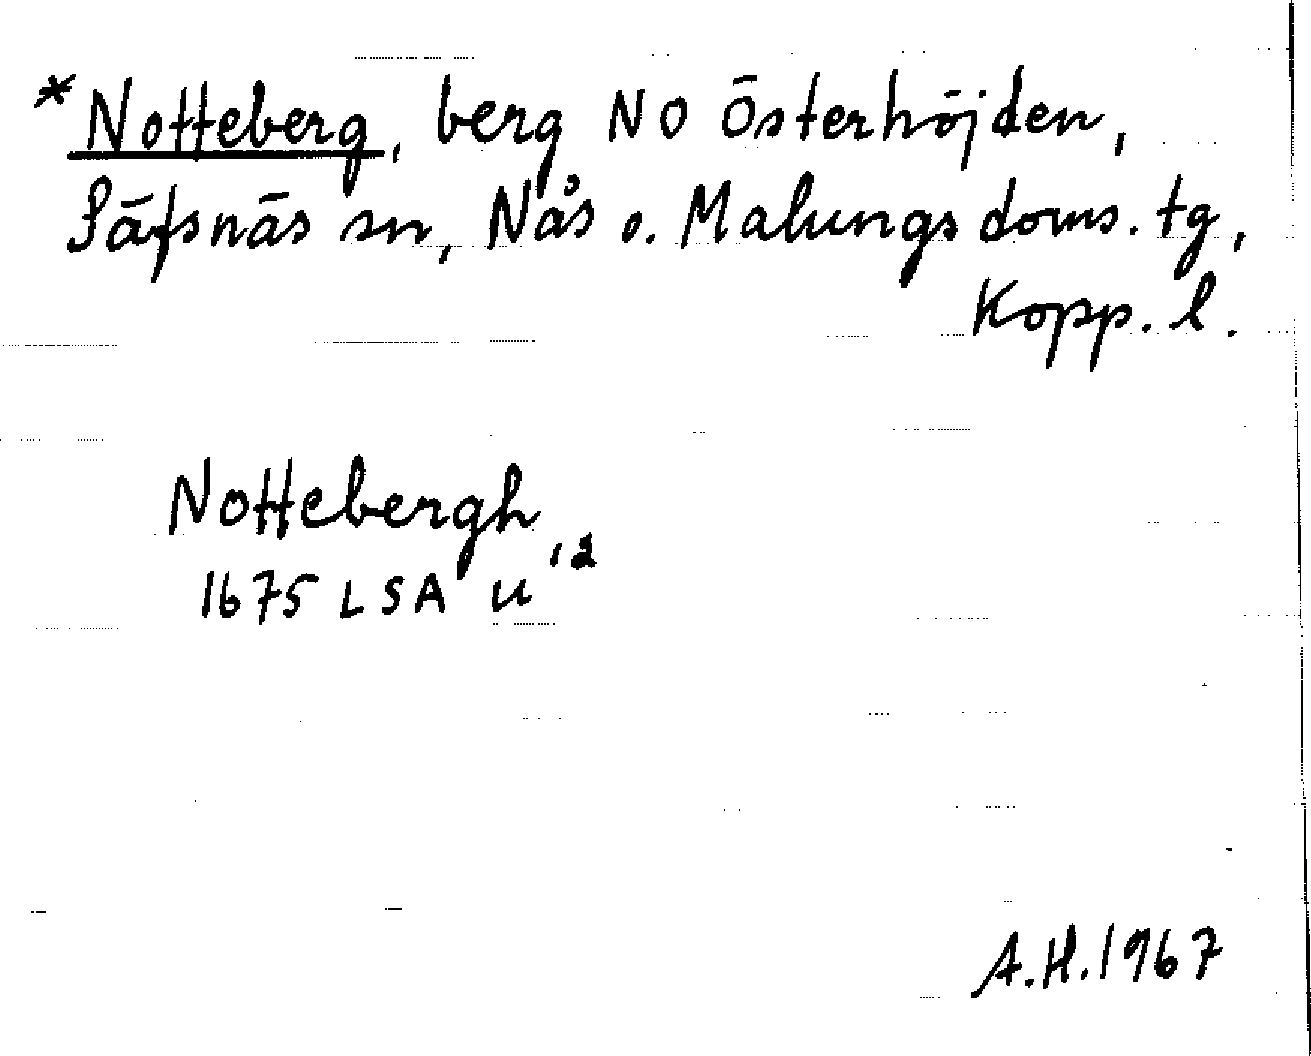 *Notteberg, berg NO Österhöjden,
Säfsnäs sn, Nås o. Malungs doms. tg,
Kopp. l.
Nottebergh
1675 LSA U'²
A.H. 1967